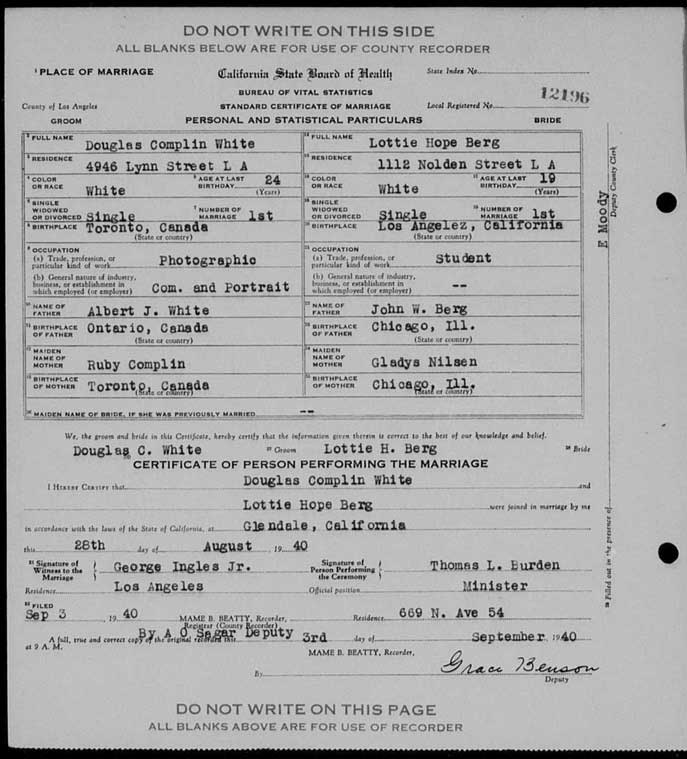 DO NOT WRITE ON THIS SIDE
ALL BLANKS BELOW ARE FOR USE OF COUNTY RECORDER
1 PLACE OF MARRIAGE California State Board of Health State Index No.
BUREAU OF VITAL STATISTICS
12196
County of Los Angeles STANDARD CERTIFICATE OF MARRIAGE Local Registered No.
GROOM PERSONAL AND STATISTICAL PARTICULARS BRIDE
FULL NAME Douglas Complin White FULL NAME Lottie Hope Berg
RESIDENCE 4946 Lynn Street L A RESIDENCE 1112 Nolden Street L A
COLOR OR RACE White AGE AT LAST BIRTHDAY 24 (Years) COLOR OR RACE White AGE AT LAST BIRTHDAY 19 (Years)
SINGLE WIDOWED OR DIVORCED Single NUMBER OF MARRIAGE 1st SINGLE WIDOWED OR DIVORCED Single NUMBER OF MARRIAGE 1st
BIRTHPLACE Toronto, Canada BIRTHPLACE Los Angelez, California
(State or country) (State or country)
OCCUPATION OCCUPATION
(a) Trade, profession, or particular kind of work Photographic (a) Trade, profession, or particular kind of work Student
(b) General nature of industry, business, or establishment in which employed (or employer) Com. and Portrait (b) General nature of industry, business, or establishment in which employed (or employer) --
NAME OF FATHER Albert J. White NAME OF FATHER John W. Berg
BIRTHPLACE OF FATHER Ontario, Canada BIRTHPLACE OF FATHER Chicago, Ill.
(State or country) (State or country)
MAIDEN NAME OF MOTHER Ruby Complin MAIDEN NAME OF MOTHER Gladys Nilsen
BIRTHPLACE OF MOTHER Toronto, Canada BIRTHPLACE OF MOTHER Chicago, Ill.
(State or country) (State or country)
MAIDEN NAME OF BRIDE, IF SHE WAS PREVIOUSLY MARRIED --
We, the groom and bride in this Certificate, hereby certify that the information given therein is correct to the best of our knowledge and belief.
Douglas C. White Groom Lottie H. Berg Bride
CERTIFICATE OF PERSON PERFORMING THE MARRIAGE
I HEREBY CERTIFY that Douglas Complin White and
Lottie Hope Berg were joined in marriage by me
in accordance with the laws of the State of California, at Glendale, California
this 28th day of August, 19 40
Signature of Witness to the Marriage George Ingles Jr. Signature of Person Performing the Ceremony Thomas L. Burden
Residence Los Angeles Official position Minister
FILED
Sep 3 19 40 MAME B. BEATTY, Recorder, Residence 669 N. Ave 54
Registrar (County Recorder)
By A O Sagar Deputy
A full, true and correct copy of the original recorded this 3rd day of September, 1940
at 9 A. M.
MAME B. BEATTY, Recorder,
By Grace Benson
Deputy
DO NOT WRITE ON THIS PAGE
ALL BLANKS ABOVE ARE FOR USE OF RECORDER
Filled out in the presence of E Moody
Deputy County Clerk